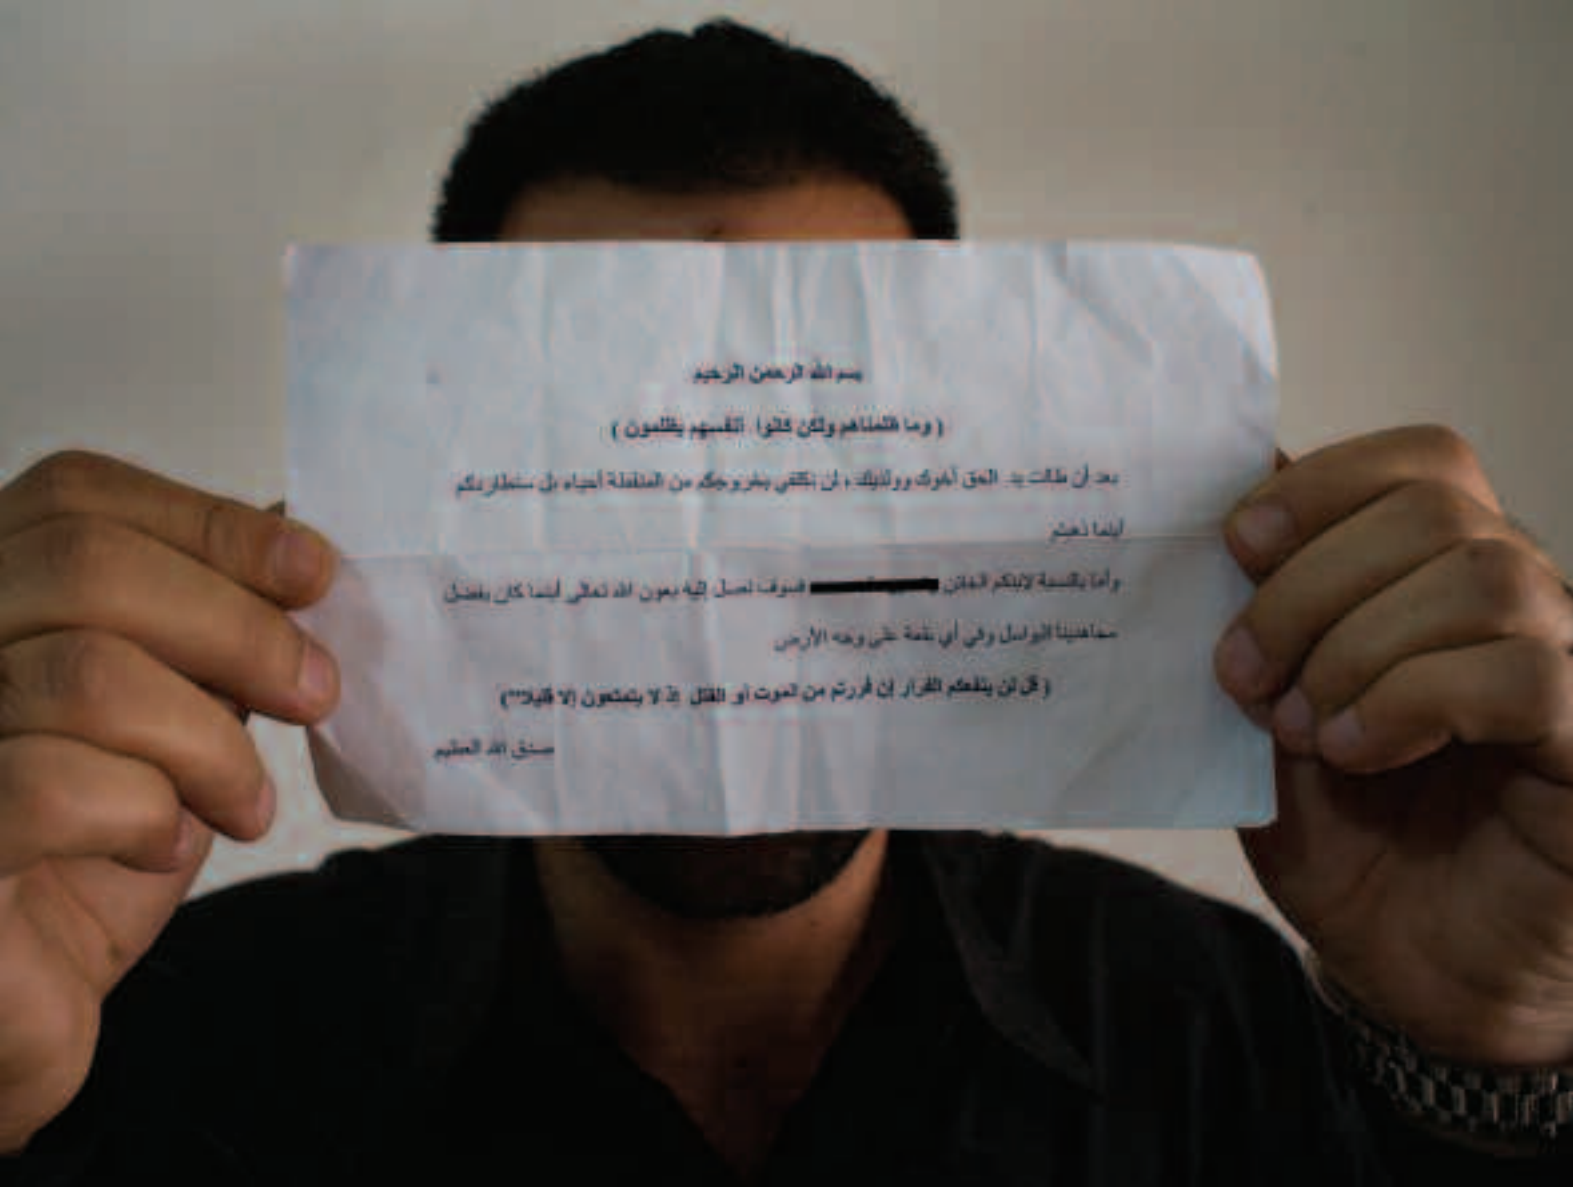 بسم الله الرحمن الرحيم
( وما ظلمناهم ولكن كانوا أنفسهم يظلمون )
بعد أن طالت يد الحق أخوك وولديك ، لن نكتفي بخروجكم من المنطقة أحياء بل سنطاردكم
أينما ذهبتم
وأما بالنسبة لابنكم الخائن فسوف نصل إليه بعون الله تعالى أينما كان بفضل
مجاهدينا البواسل وفي أي بقعة على وجه الأرض
( قل لن ينفعكم الفرار إن فررتم من الموت أو القتل إذ لا يتمتعون إلا قليلا"")
صدق الله العظيم